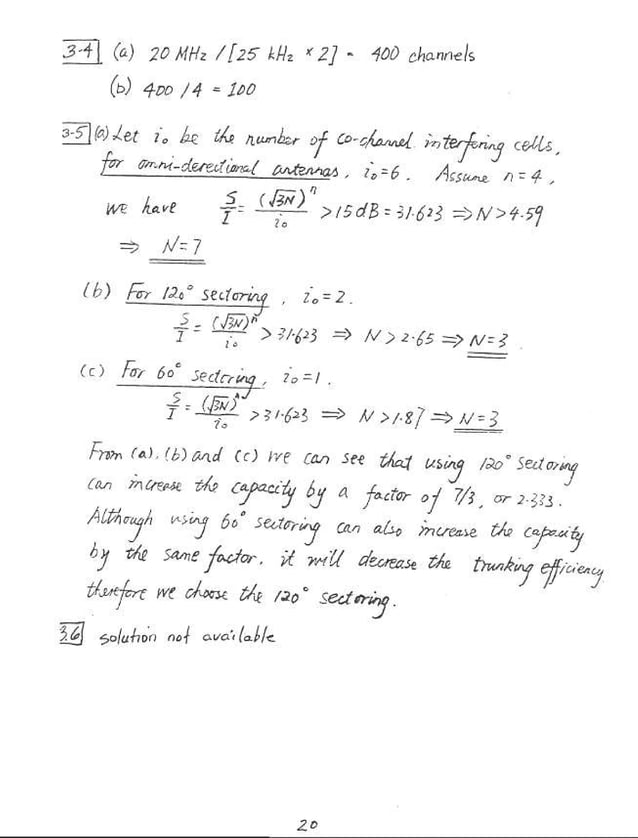 3-4 (a) 20 MHz / [25 kHz * 2] = 400 channels
(b) 400 / 4 = 100
3-5 (a) Let i₀ be the number of co-channel interfering cells,
for omni-derectional antennas, i₀=6. Assume n=4,
we have S/I = (√3N)ⁿ/i₀ > 15dB = 31.623 ⇒ N > 4.59
⇒ N=7
(b) For 120° sectoring, i₀=2.
S/I = (√3N)ⁿ/i₀ > 31.623 ⇒ N > 2.65 ⇒ N=3
(c) For 60° sectoring, i₀=1.
S/I = (√3N)ⁿ/i₀ > 31.623 ⇒ N > 1.87 ⇒ N=3
From (a), (b) and (c) we can see that using 120° sectoring
can increase the capacity by a factor of 7/3, or 2.333.
Although using 60° sectoring can also increase the capacity
by the same factor, it will decrease the trunking efficiency
therefore we choose the 120° sectoring.
3.6 solution not available
20